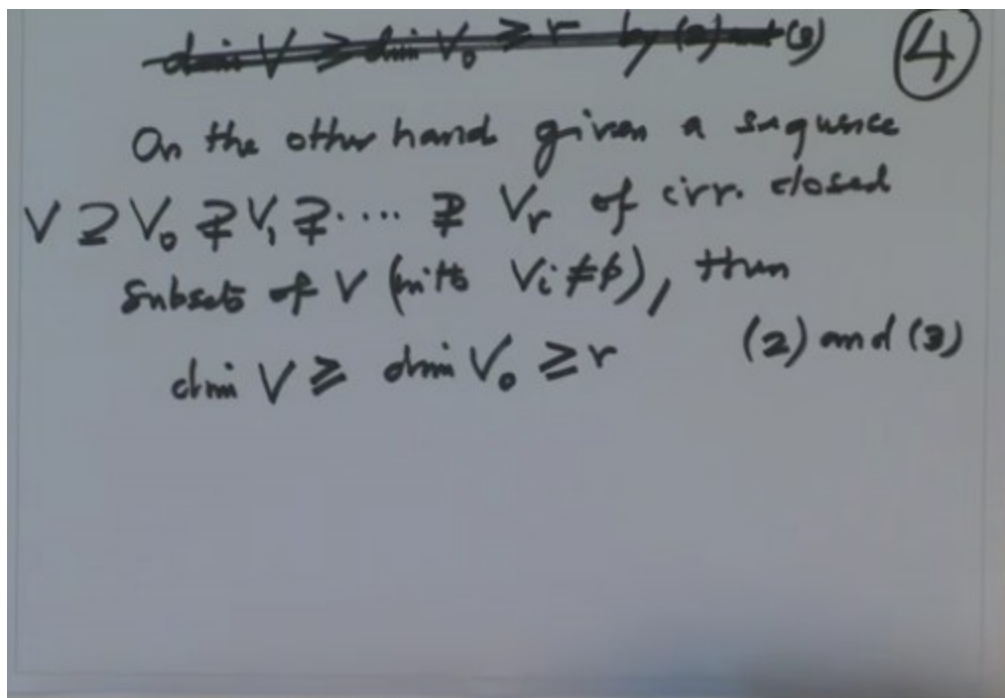 dim V ≥ dim V₀ ≥ r by (2) and (3)
④
On the other hand given a sequence
V ⊇ V₀ ⊋ V₁ ⊋ .... ⊋ Vᵣ of irr. closed
subsets of V (with Vi ≠ φ), then
dim V ≥ dim V₀ ≥ r (2) and (3)